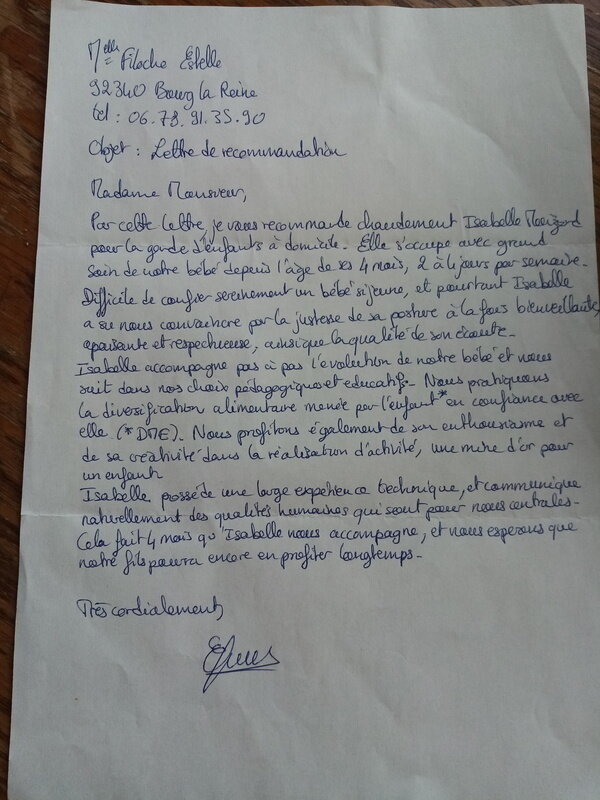 Melle Filoche Estelle
92340 Bourg la Reine
tel : 06.78.91.35.90
Objet : Lettre de recommandation
Madame Monsieur,
Par cette lettre, je vous recommande chaudement Isabelle
pour la garde d'enfants à domicile. Elle s'occupe avec grand
soin de notre bébé depuis l'âge de ses 4 mois, 2 à 4 jours par semaine.
Difficile de confier sereinement un bébé si jeune, et pourtant Isabelle
a su nous convaincre par la justesse de sa posture à la fois bienveillante,
apaisante et respectueuse, ainsi que la qualité de son écoute.
Isabelle accompagne pas à pas l'évolution de notre bébé et nous
suit dans nos choix pédagogiques et educatifs. Nous pratiquons
la diversification alimentaire menée par l'enfant* en confiance avec
elle (*DME). Nous profitons également de son enthousiasme et
de sa créativité dans la réalisation d'activité, une mine d'or pour
un enfant.
Isabelle possède une large expérience technique, et communique
naturellement des qualités humaines qui sont pour nous centrales.
Cela fait 4 mois qu'Isabelle nous accompagne, et nous esperons que
notre fils pourra encore en profiter longtemps.
Très cordialement,